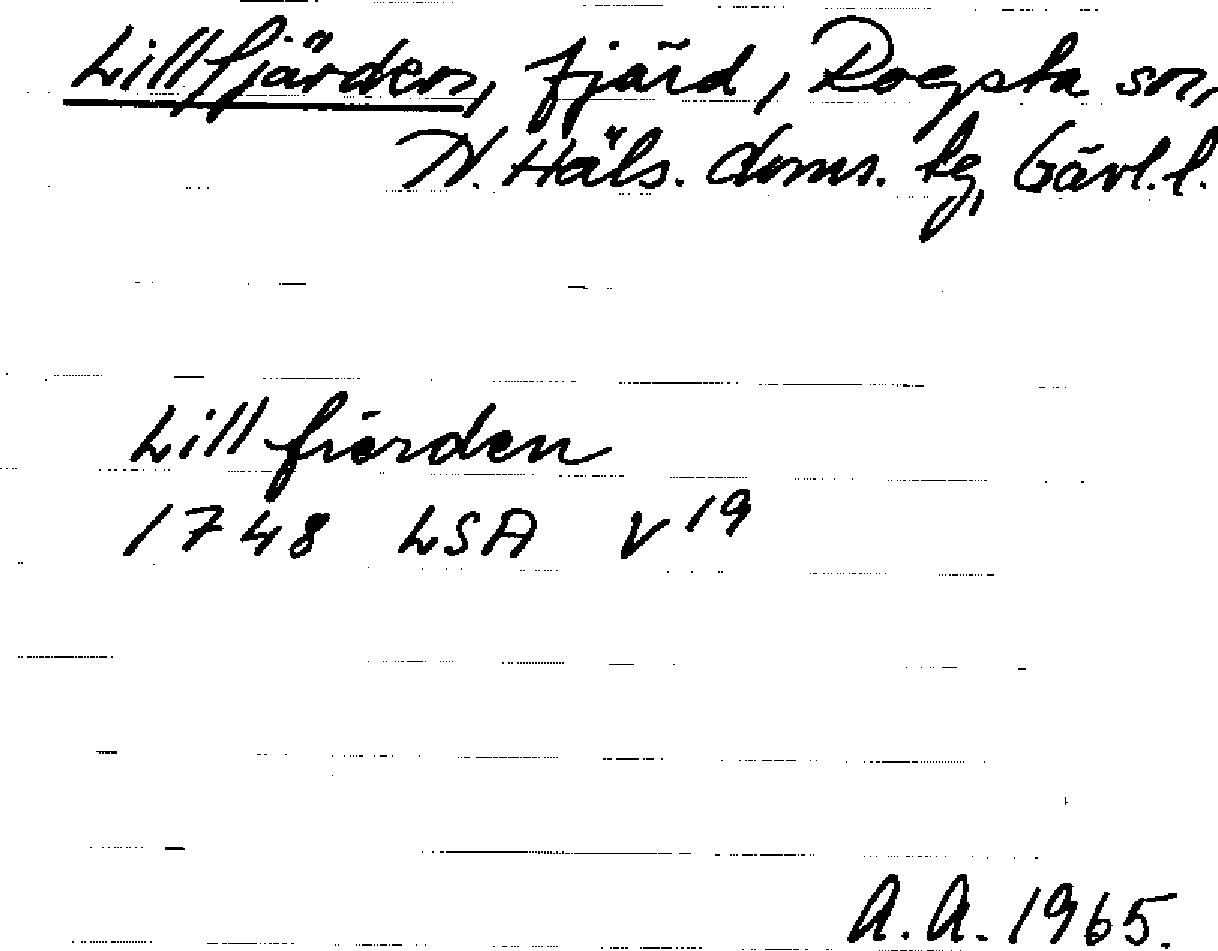 Lillfjärden, fjärd, Rogsta sn,
N. Häls. doms. tg, Gävl. l.
Lill fierden
1748 LSA V¹⁹
A. A. 1965.